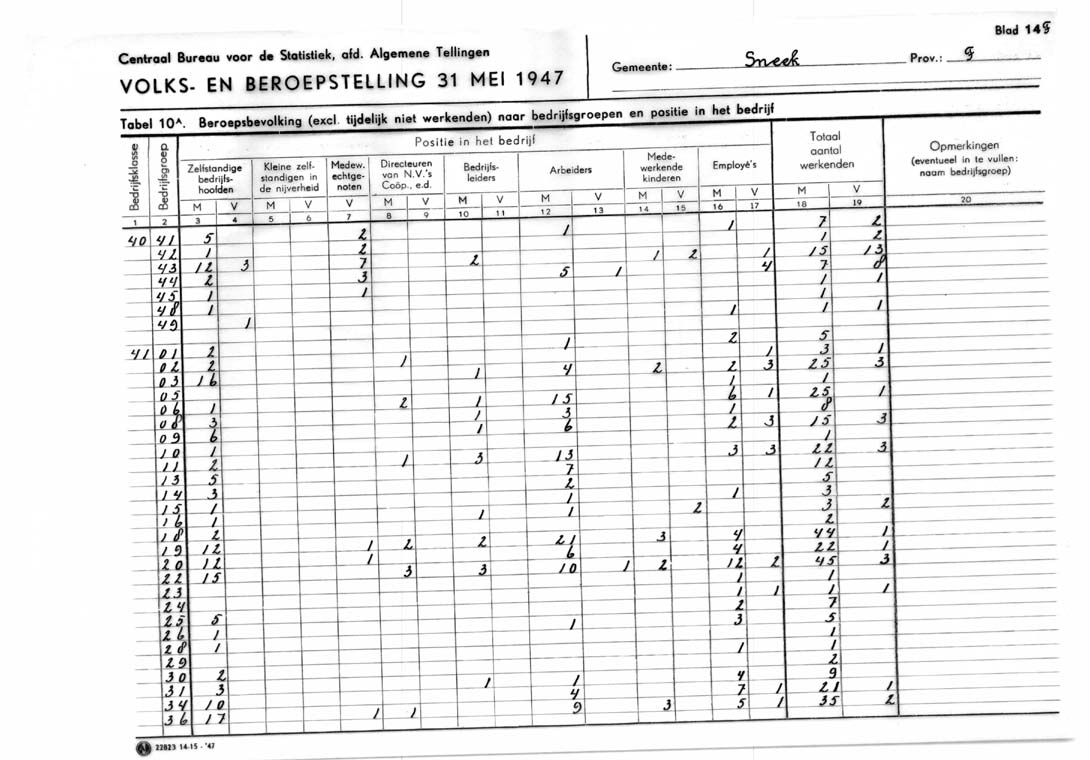 Blad 14g
Centraal Bureau voor de Statistiek, afd. Algemene Tellingen
VOLKS- EN BEROEPSTELLING 31 MEI 1947
Gemeente: Sneek Prov.: g
Tabel 10A. Beroepsbevolking (excl. tijdelijk niet werkenden) naar bedrijfsgroepen en positie in het bedrijf
Bedrijfsklasse Bedrijfsgroep Positie in het bedrijf Totaal aantal werkenden Opmerkingen (eventueel in te vullen: naam bedrijfsgroep)
Zelfstandige bedrijfshoofden Kleine zelfstandigen in de nijverheid Medew. echtgenoten Directeuren van N.V.'s Coöp., e.d. Bedrijfsleiders Arbeiders Medewerkende kinderen Employé's
M V M V V M V M V M V M V M V M V
1 2 3 4 5 6 7 8 9 10 11 12 13 14 15 16 17 18 19 20
40 41 5 2 1 1 7 2
42 1 2 1 2
43 12 3 7 2 1 2 1 15 13
44 2 3 5 1 4 7 8
45 1 1 1 1
48 1 1
49 1 1 1 1
41 01 2 1 2 5
02 2 1 1 3 1
03 16 1 4 2 2 3 25 3
05 1 1
06 1 2 1 15 6 1 25 1
08 3 1 3 1 8
09 6 1 6 2 3 15 3
10 1 1
11 2 1 3 13 3 3 22 3
13 5 7 12
14 3 2 5
15 1 1 1 3
16 1 1 1 2 3 2
18 2 2
19 12 1 2 2 21 3 4 44 1
20 12 1 6 4 22 1
22 15 3 3 10 1 2 12 2 45 3
23 1 1
24 1 1 1 1
25 5 2 7
26 1 1 3 5
28 1 1
29 1 1
30 2 2
31 3 1 1 4 9
34 10 4 7 1 21 1
36 17 1 1 9 3 5 1 35 2
22823 14-15 - '47